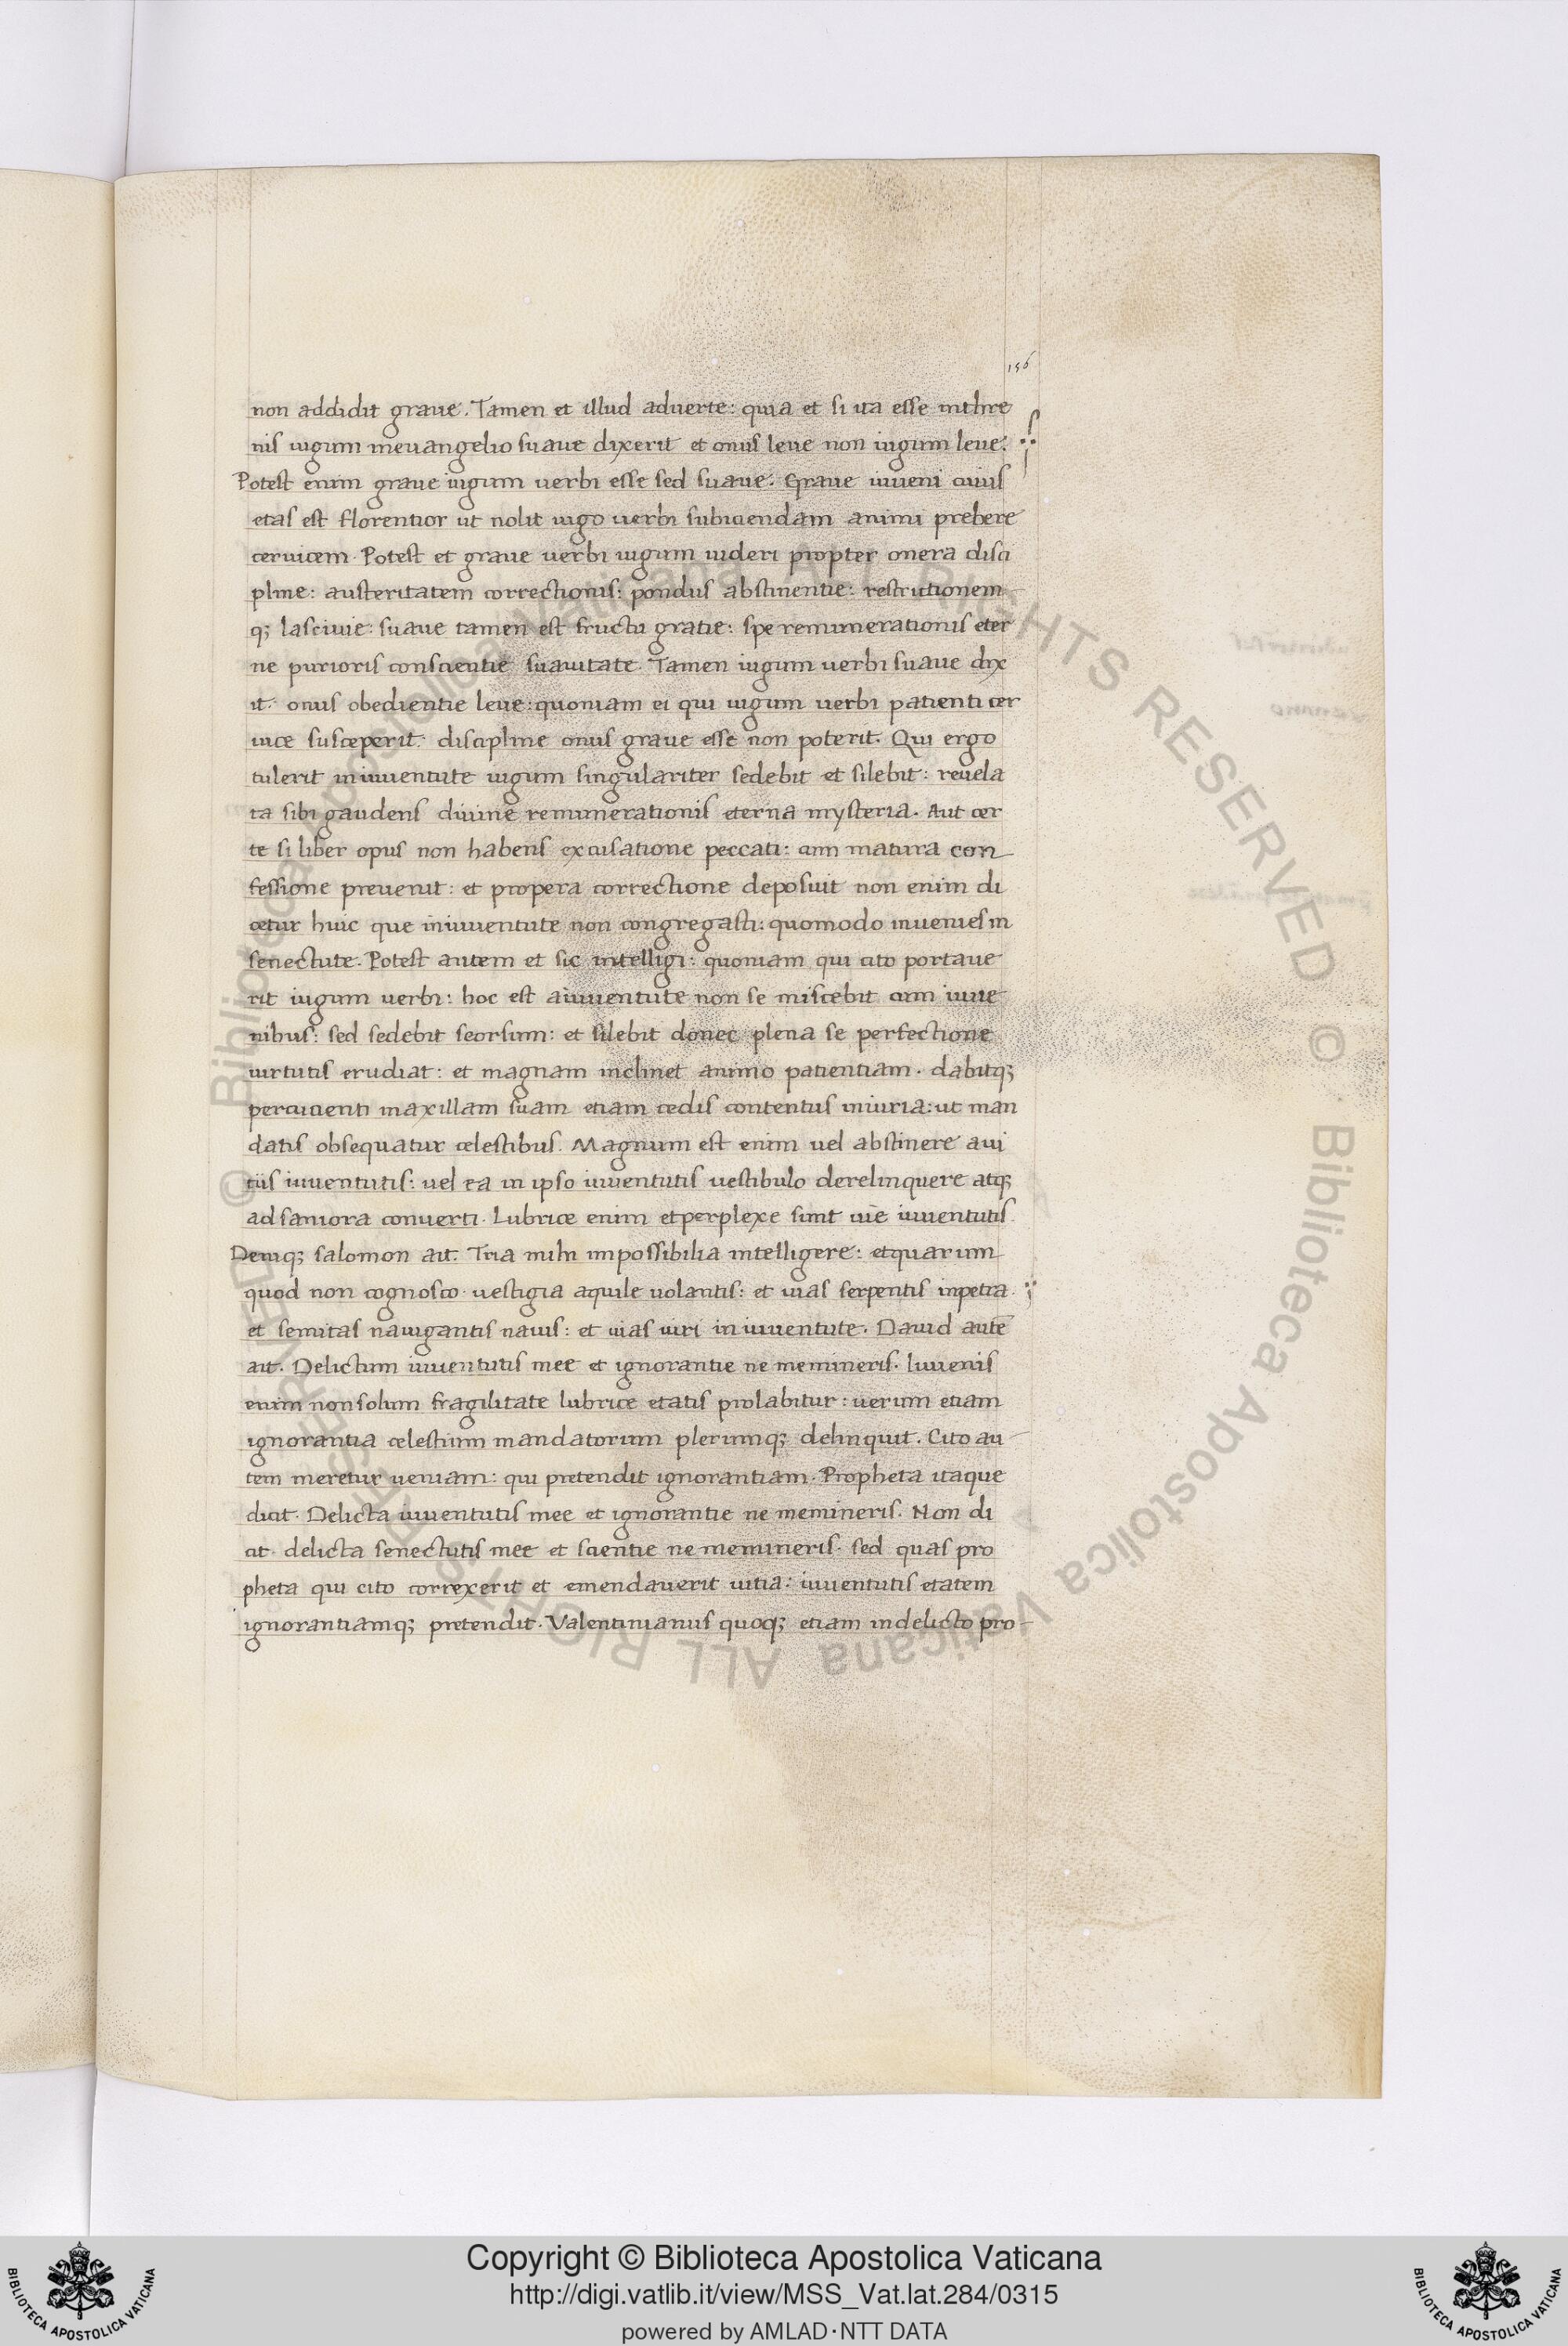 156
non addidit graue. Tamen et illud aduerte: quia et si ita esse inthre
nis iugum ineuangelio suaue dixerit et onus leue non iugum leue:
Potest enim graue iugum uerbi esse sed suaue. Graue iuueni cuius
etas est florentior ut nolit iugo uerbi subiciendam animi prebere
ceruicem. Potest et graue uerbi iugum uideri propter onera disci
pline: austeritatem correctionis: pondus abstinentie: restrictionem
q; lasciuie: suaue tamen est fructu gratie: spe remunerationis eter
ne purioris conscientie suauitate. Tamen iugum uerbi suaue dix
it: onus obedientie leue: quoniam ei qui iugum uerbi patienti cer
uice susceperit: discipline onus graue esse non poterit. Qui ergo
tulerit iniuuentute iugum singulariter sedebit et silebit: reuela
ta sibi gaudens diuine remunerationis eterna mysteria. Aut cer
te si liber opus non habens excusatione peccati: cum matura con
fessione preuenit: et propera correctione deposuit non enim di
cetur huic que iniuuentute non congregasti: quomodo inuenies in
senectute. Potest autem et sic intelligi: quoniam qui cito portaue
rit iugum uerbi: hoc est aiuuentute non se miscebit cum iuue
nibus: sed sedebit seorsum: et silebit donec plena se perfectione
uirtutis erudiat: et magnam inclinet animo patientiam. dabitq;
percutienti maxillam suam etiam cedis contentus iniuria: ut man
datis obsequatur celestibus. Magnum est enim uel abstinere aui
tiis iuuentutis: uel ea in ipso iuuentutis uestibulo derelinquere atq;
ad saniora conuerti. Lubrice enim et perplexe sunt uie iuuentutis.
Deniq; salomon ait. Tria mihi impossibilia intelligere: et quarum
quod non cognosco. uestigia aquile uolantis: et uias serpentis inpetra.
et semitas nauigantis nauis: et uias uiri iniuuentute. Dauid autē
ait. Delictum iuuentutis mee et ignorantie ne memineris. Iuuenis
enim nonsolum fragilitate lubrice etatis prolabitur: uerum etiam
ignorantia celestium mandatorum plerumq; delinquit. Cito au
tem meretur ueniam: qui pretendit ignorantiam. Propheta itaque
dicit. Delicta iuuentutis mee et ignorantie ne memineris. Non di
cit. delicta senectutis mee et scientie ne memineris. sed quas pro
pheta qui cito correxerit et emendauerit uitia: iuuentutis etatem
ignorantiamq; pretendit. Valentinianus quoq; etiam indelicto pro
© Biblioteca Apostolica Vaticana ALL RIGHTS RESERVED © Biblioteca Apostolica Vaticana ALL RIGHTS RESERVED
Copyright © Biblioteca Apostolica Vaticana
http://digi.vatlib.it/view/MSS_Vat.lat.284/0315
powered by AMLAD·NTT DATA
BIBLIOTECA APOSTOLICA VATICANA
BIBLIOTECA APOSTOLICA VATICANA